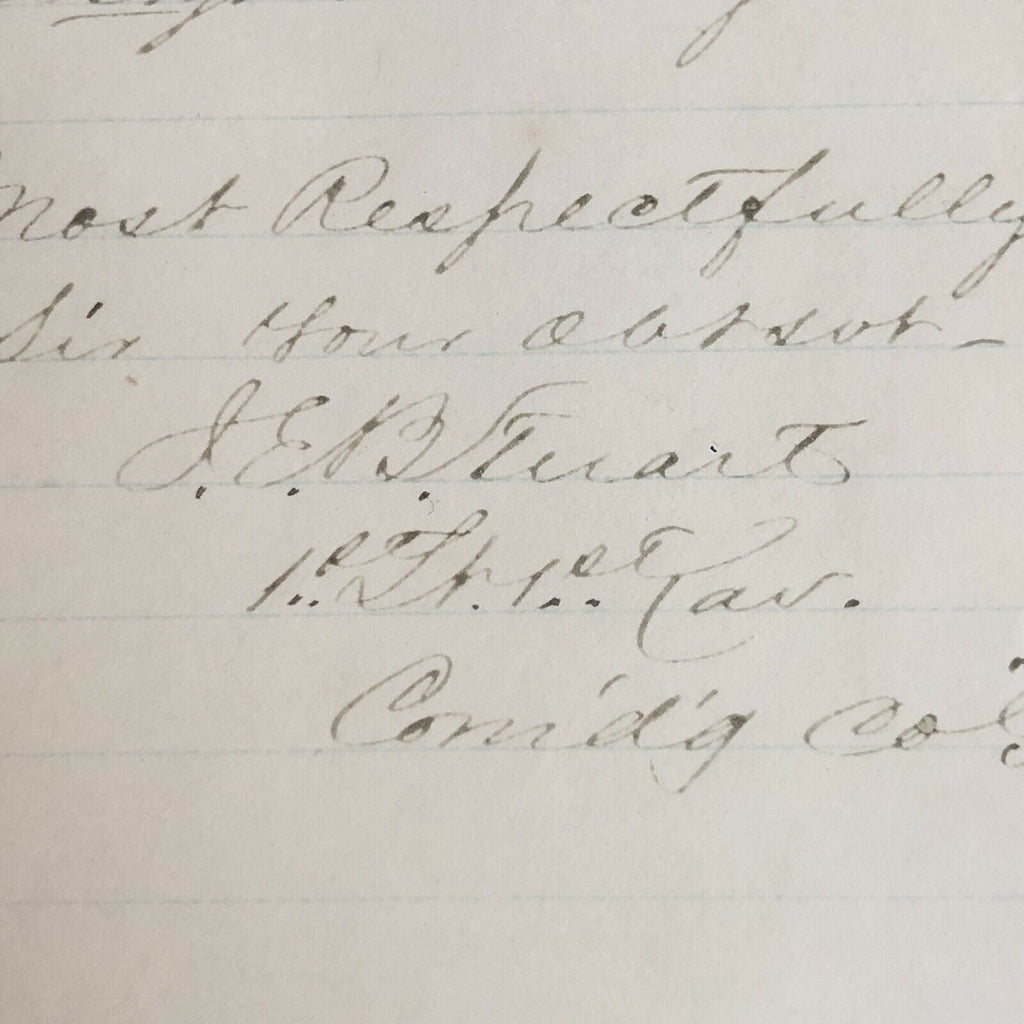 Most Respectfully
Sir Your obt svt –
J. E. B. Stuart
1st Lt. 1st Cav.
Com'd'g Co